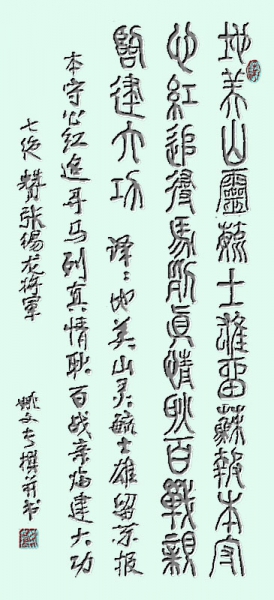 地美山靈毓士雄留蘇報本守
心紅追尋馬列真情耿百戰親
臨建大功 译：地美山灵毓士雄留苏报
本守心红追寻马列真情耿百战亲临建大功
七绝 赞张锡龙将军 姚文撰并书